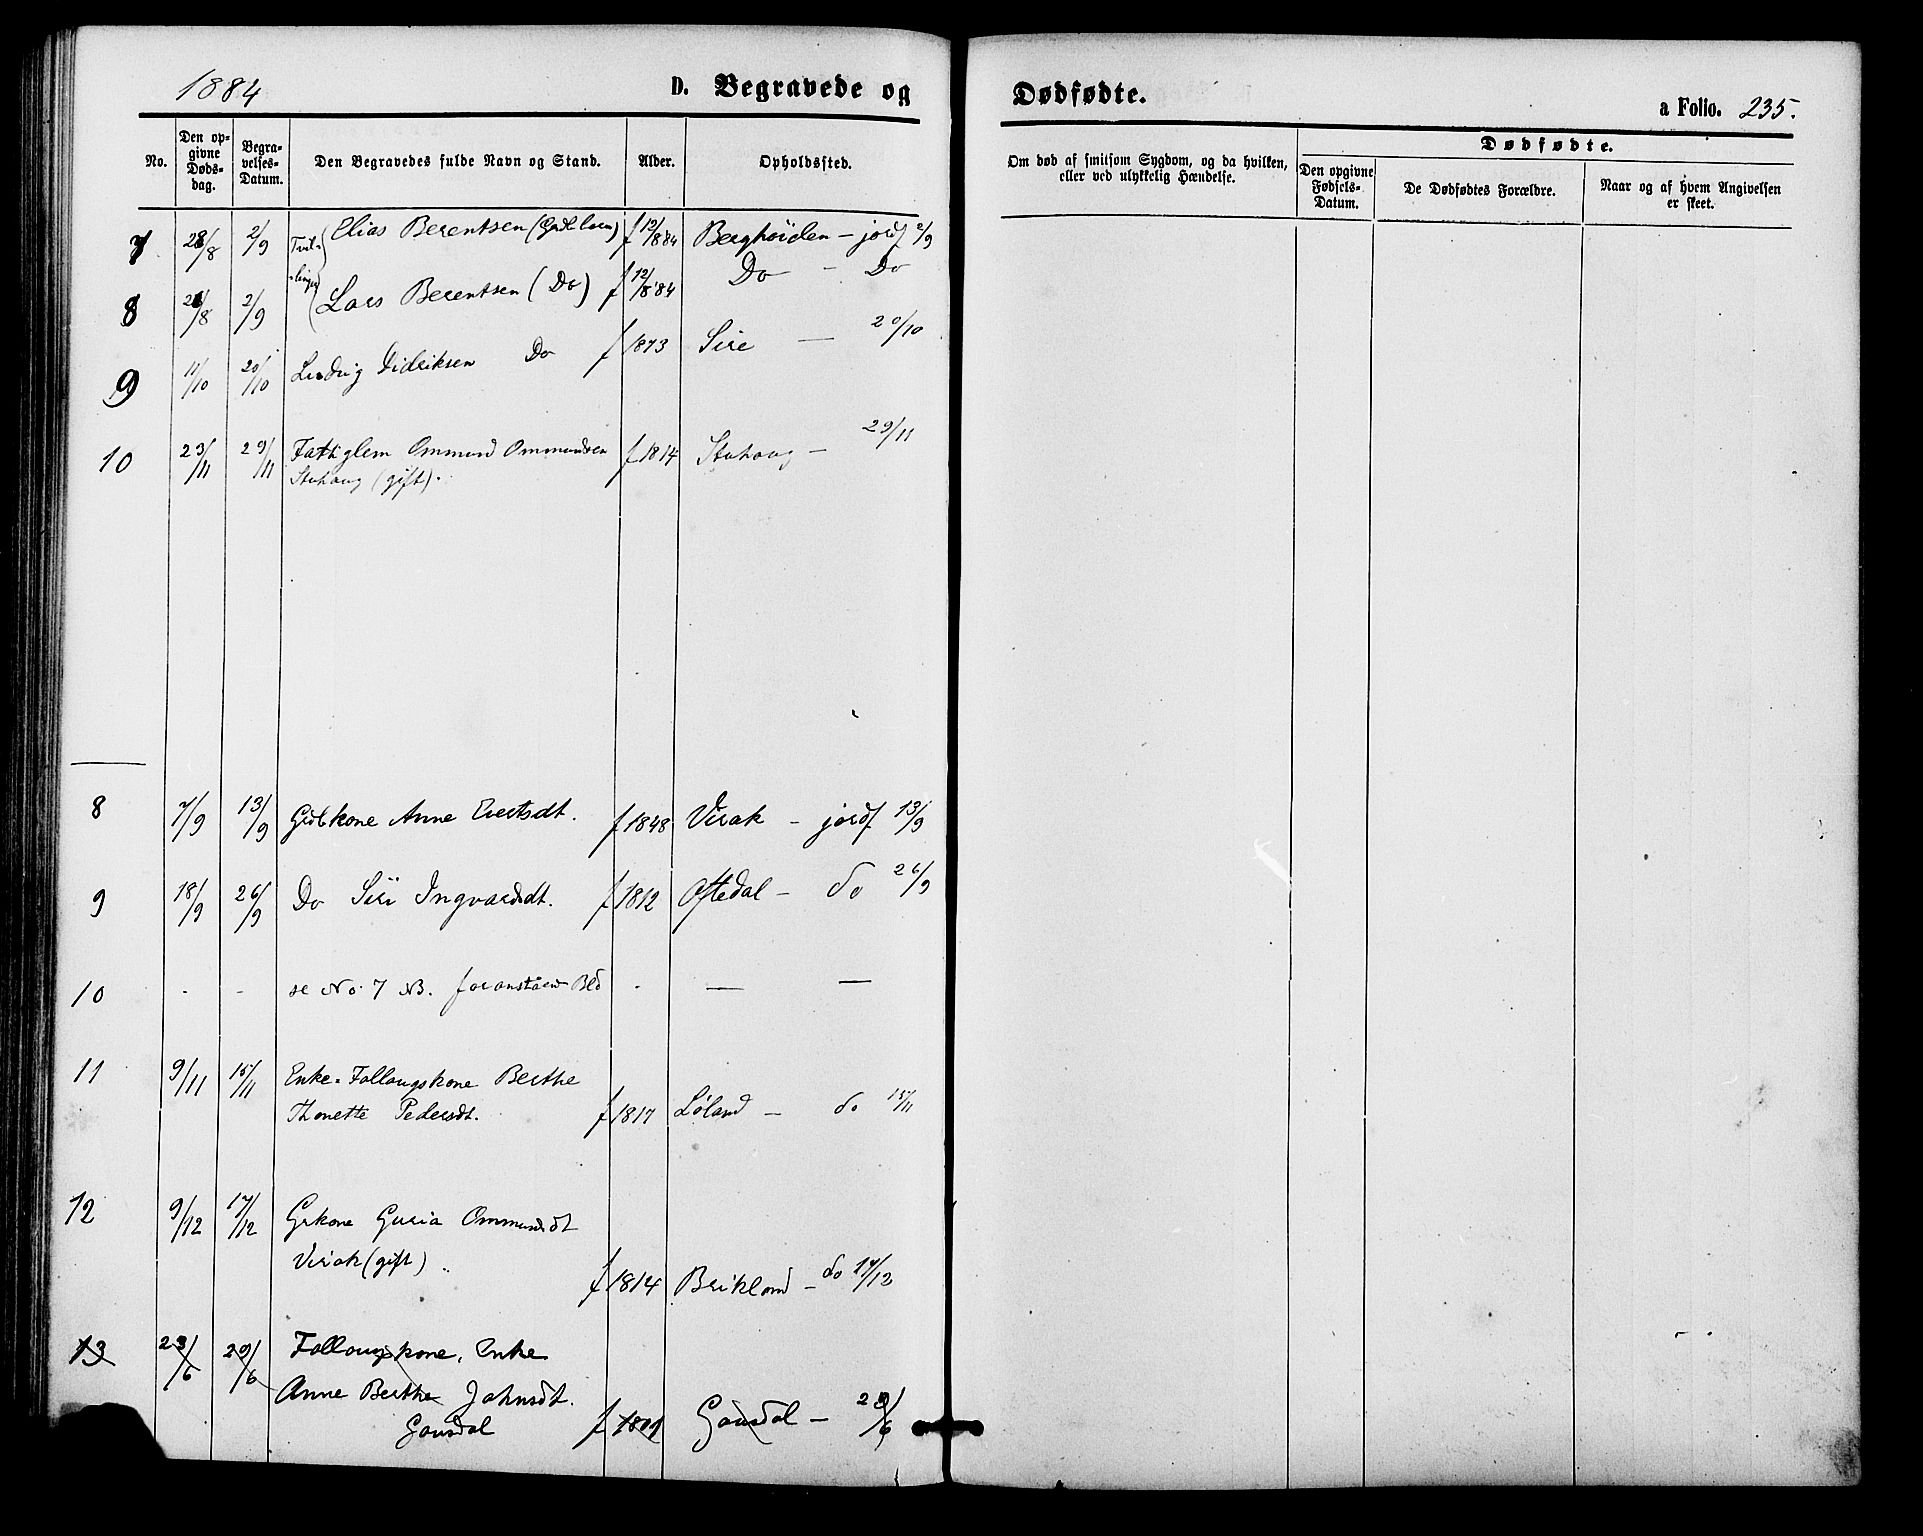 1884
D. Begravede og Dødfødte.
a Folio. 235.
No.
Den opgivne Dødsdag.
Begravelses-Datum.
Den Begravedes fulde Navn og Stand.
Alder.
Opholdssted.
Om død af smitsom Sygdom, og da hvilken,
eller ved ulykkelig Hændelse.
Dødfødte.
Den opgivne Fødsels-Datum.
De Dødfødtes Forældre.
Naar og af hvem Angivelsen
er skeet.
7 28/8 2/9 Tvil- Elias Berentsen f 12/8 84 Berghöiden – jordf 2/9
8 28/8 2/9 linger Lars Berentsen (Do) f 12/8 84 Do – Do
9 11/10 20/10 Ludvig Didriksen Do f 1873 Sire — 20/10
10 23/11 29/11 Fattiglem Ommund Ommundsen f 1814 Stuhaug – 29/11
Stuhaug (gift).
8 7/9 13/9 Gdbkone Anne Evertsdt. f 1848 Virak – jordf 13/9
9 18/9 26/9 Do Siri Ingvarsdt. f 1812 Oftedal – do 26/9
10 - - se No 7 NB. foranstående Bld - — —
11 9/11 15/11 Enke. Follaugskone Berthe
Thonette Pedersdt. f 1817 Löland – do 15/11
12 9/12 17/12 Grkone Guria Ommundsdt
Virak (gift) f 1814 Brikland – do 17/12
13 23/6 29/6 Follaugskone, Enke
Anne Berthe Johnsdt.
Gausdal f 1801 Gausdal – 29/6